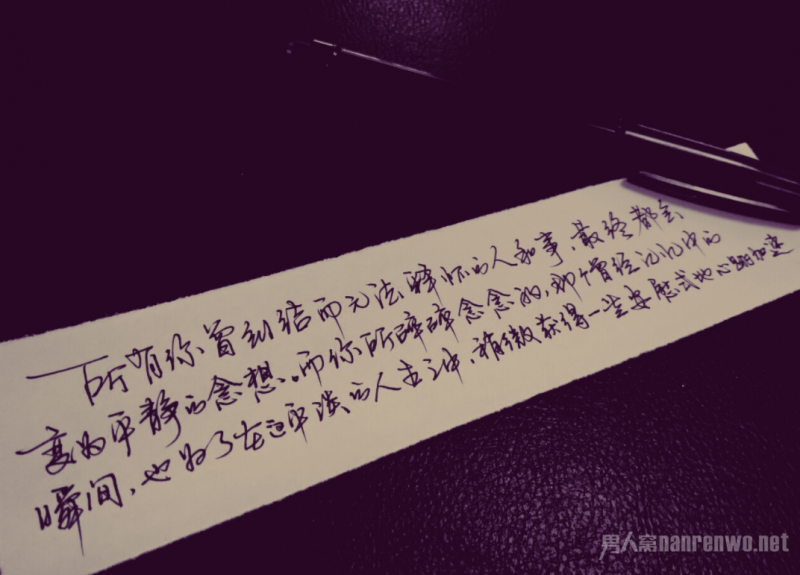 所有你曾纠结而无法释怀的人和事，最终都会
变为平静的念想。而你所碎碎念念的，那个曾经记忆中的
瞬间，也为了在这平淡的人生中，稍微获得一些安慰式的心跳加速
男人窝nanrenwo.net